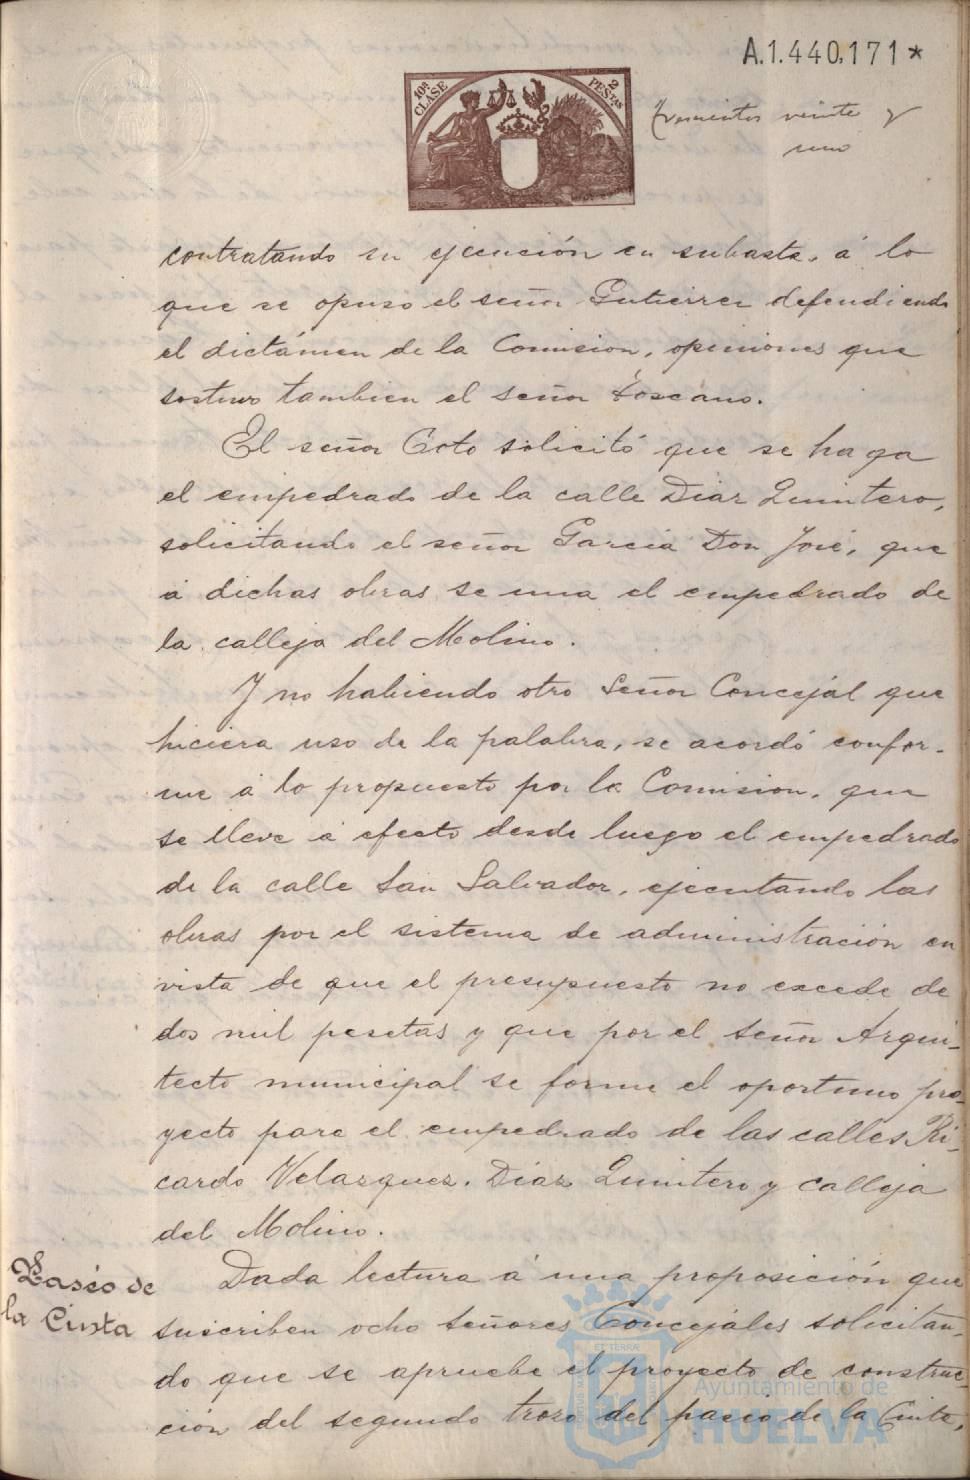 A.1.440,171*
10ª CLASE
2 PESETAS
trescientos veinte y
uno
contratando su ejecución en subasta, á lo
que se opuso el señor Gutierrez defendiendo
el dictámen de la Comision, opiniones que
sostuvo tambien el señor Toscano.
El señor Coto solicitó que se haga
el empedrado de la calle Diaz Quintero,
solicitando el señor Garcia Don José, que
á dichas obras se una el empedrado de
la calleja del Molino.
Y no habiendo otro Señor Concejal que
hiciera uso de la palabra, se acordó confor-
me á lo propuesto por la Comision, que
se lleve á efecto desde luego el empedrado
de la calle San Salvador, ejecutando las
obras por el sistema de administración en
vista de que el presupuesto no excede de
dos mil pesetas y que por el señor Arqui-
tecto municipal se forme el oportuno pro-
yecto para el empedrado de las calles Ri-
cardo Velazquez, Diaz Quintero y calleja
del Molino.
Paseo de
la Cinta
Dada lectura á una proposición que
suscriben ocho señores Concejales solicitan-
do que se apruebe el proyecto de construc-
ción del segundo trozo del paseo de la Cinta,
Ayuntamiento de
HUELVA